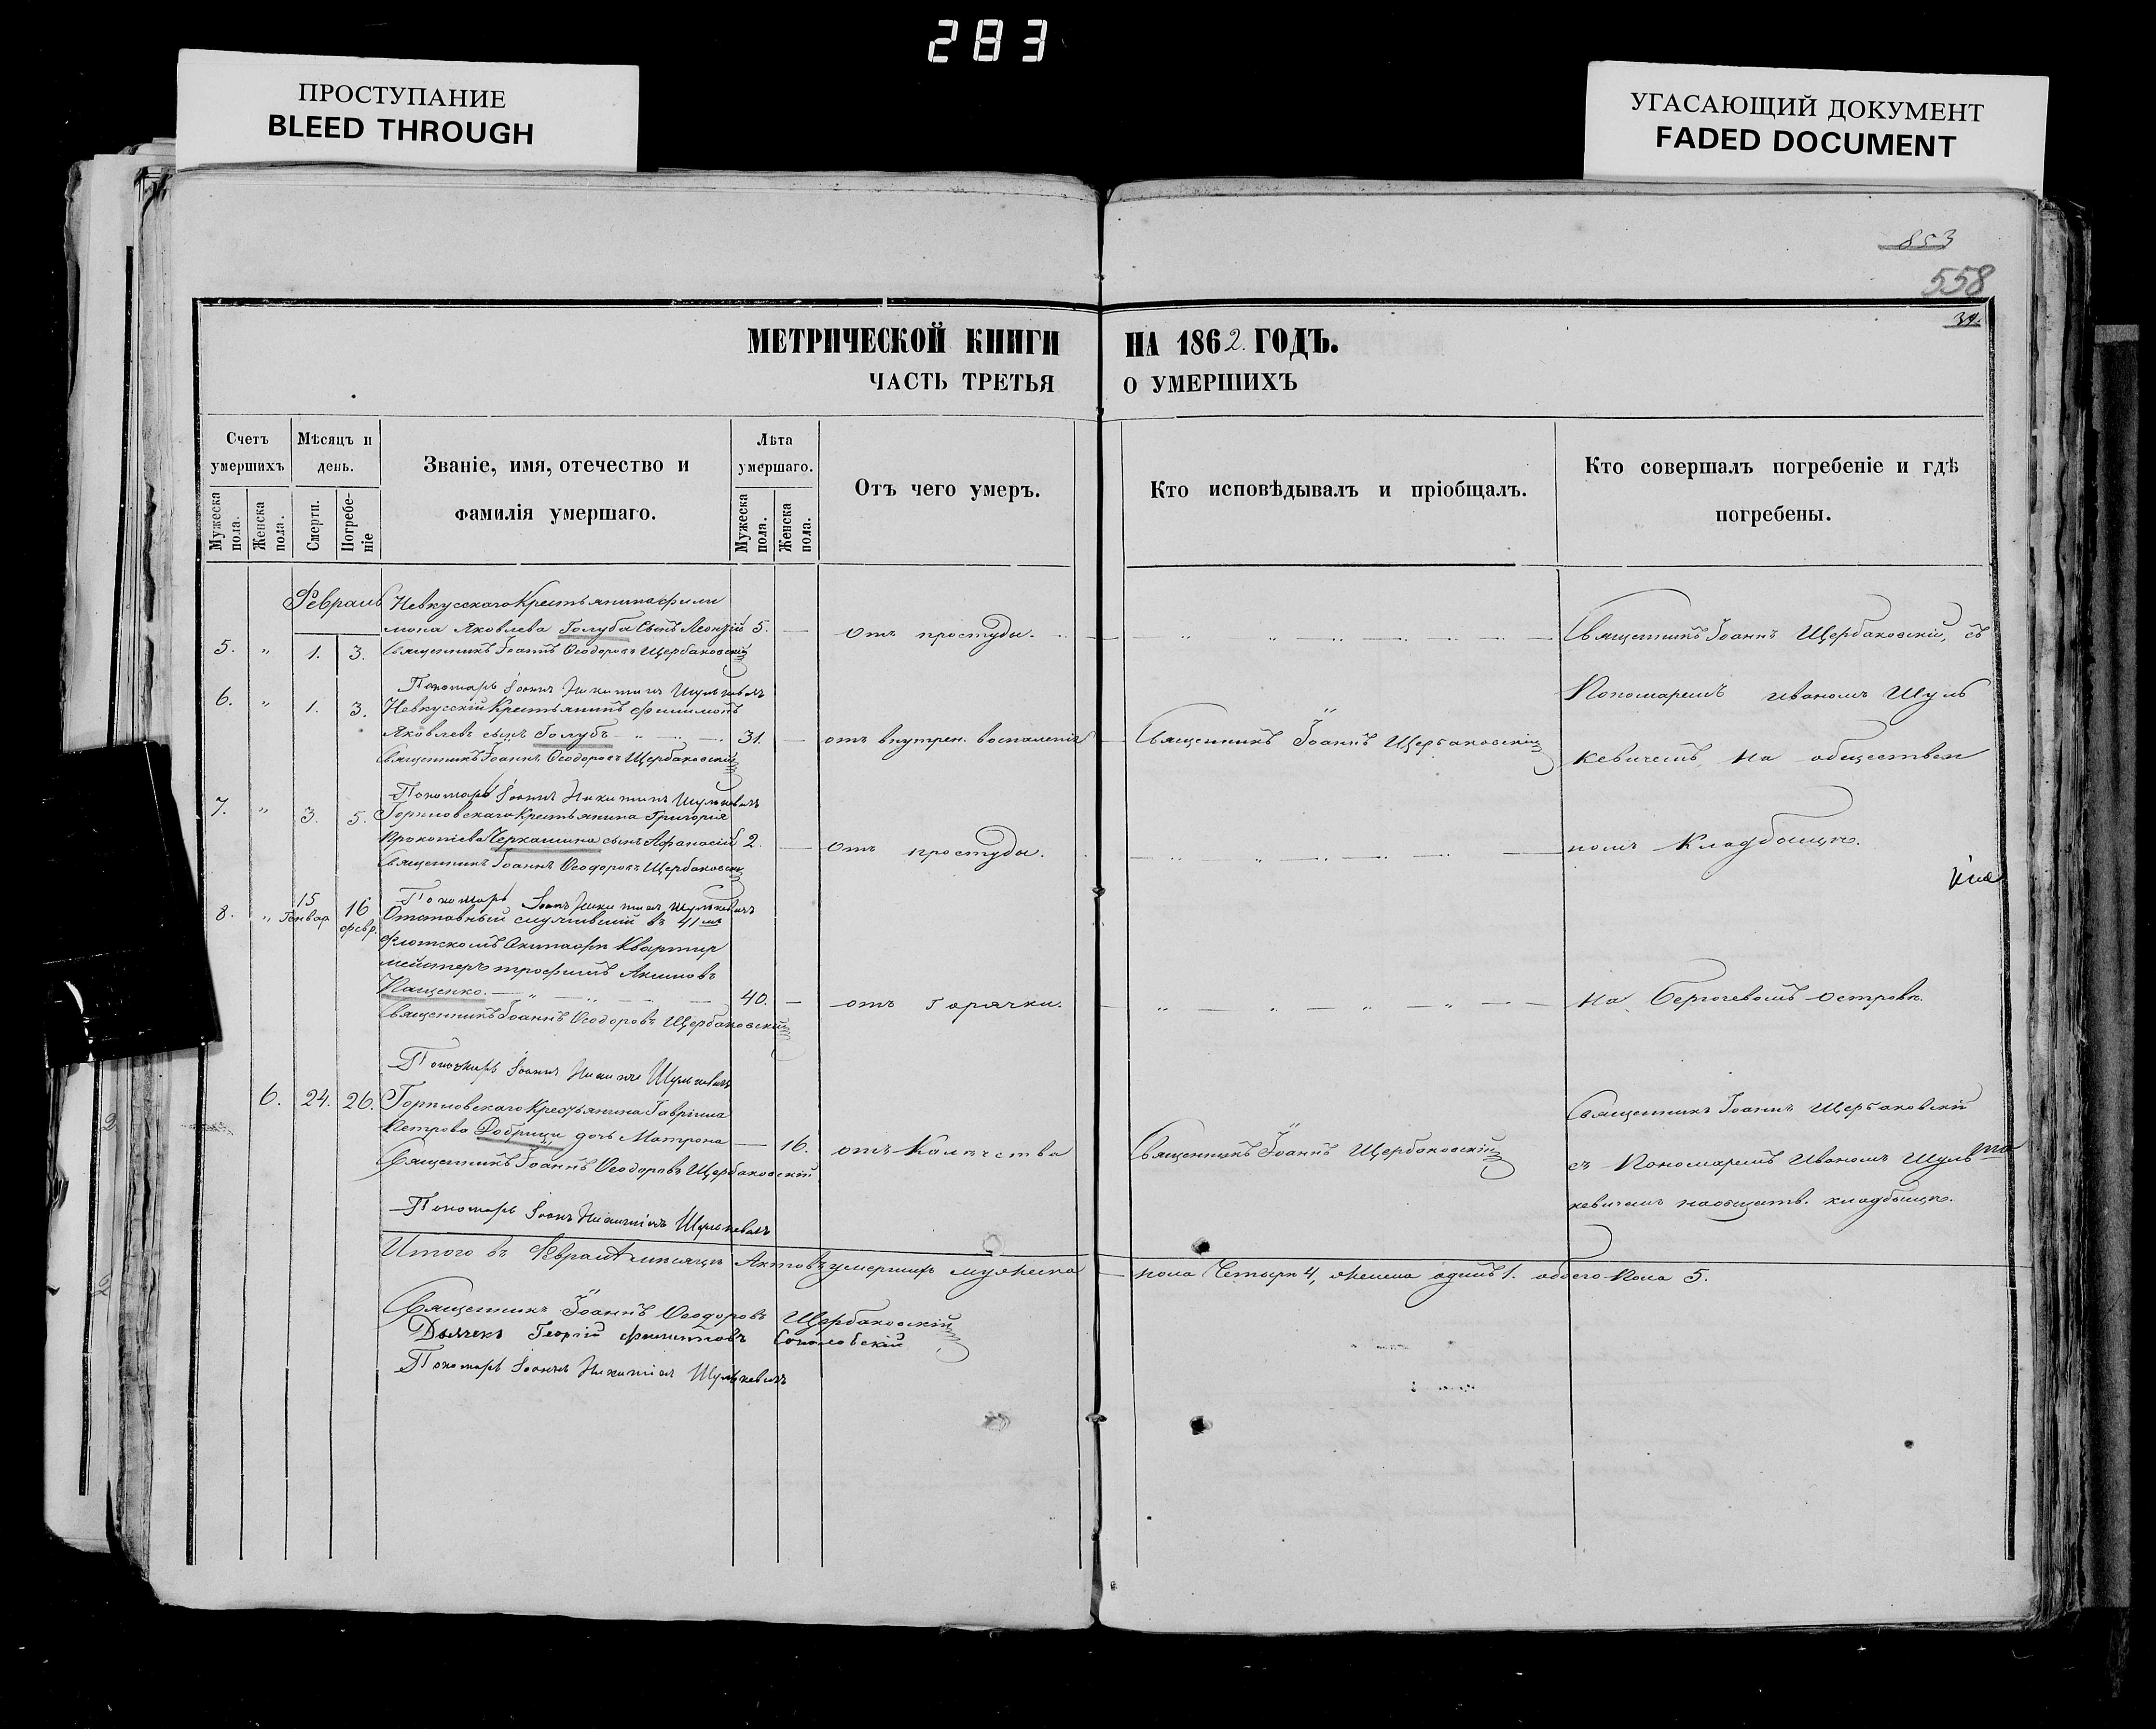 283
ПРОСТУПАНИЕ
BLEED THROUGH
УГАСАЮЩИЙ ДОКУМЕНТ
FADED DOCUMENT
853
558
МЕТРИЧЕСКОЙ КНИГИ НА 1862. ГОДЪ.
ЧАСТЬ ТРЕТЬЯ О УМЕРШИХЪ
Счетъ умершихъ
Мужеска пола.
Женска пола.
Мѣсяцъ и день.
Смерти.
Погребе-ніе
Званіе, имя, отечество и
фамилія умершаго.
Лѣта умершаго.
Мужеска пола.
Женска пола.
Отъ чего умеръ.
Кто исповѣдывалъ и пріобщалъ.
Кто совершалъ погребеніе и гдѣ
погребены.
Февраль Невкусскаго Крестьянина Фили
мона Яковлева Голуба Сынъ Леонтій 5. Отъ простуды. Священникъ Іоаннъ Щербаковскій, съ
5. " 1. 3. Священникъ Іоаннъ Ѳеодоровъ Щербаковскій
Пономарь Іоаннъ Никитинъ Шулькевичъ Пономаремъ Иваномъ Шуль
6. " 1. 3. Невкусскій Крестьянинъ Филимонъ
Яковлевъ сынъ Голубъ 31. отъ внутрен. воспаленія Священникъ Іоаннъ Щербаковскій
Священникъ Іоаннъ Ѳеодоровъ Щербаковскій кевичемъ, на обществен
Пономарь Іоаннъ Никитинъ Шулькевичъ
7. " 3. 5. Крестьянина Григорія
Прокопіева Черкашина сынъ Афанасій 2. Отъ простуды. номъ Кладбищѣ.
Священникъ Іоаннъ Ѳеодоровъ Щербаковскій
Пономарь Іоаннъ Никитинъ Шулькевичъ
8. " 15 Генвар 16 февр. Отставный служившій въ 41мъ
флотскомъ Екипажѣ Квартир
мейстеръ Трофимъ Акимовъ
Пащенко. 40. отъ горячки. На островѣ.
Священникъ Іоаннъ Ѳеодоровъ Щербаковскій
Пономарь Іоаннъ Никитинъ Шулькевичъ
6. 24. 26. Крестьянина Гавріила Священникъ Іоаннъ Щербаковскій
Петрова Добрици дочь Матрона 16. отъ Священникъ Іоаннъ Щербаковскій съ Пономаремъ Иваномъ Шуль
Священникъ Іоаннъ Ѳеодоровъ Щербаковскій
Пономарь Іоаннъ Никитинъ Шулькевичъ кевичемъ кладбищѣ.
Итого въ Февралѣ мѣсяцѣ Актовъ умершихъ мужеска пола Четыре 4, женска одинъ 1. обоего пола 5.
Священникъ Іоаннъ Ѳеодоровъ Щербаковскій
Дьячекъ Георгій Филипповъ Соколовскій
Пономарь Іоаннъ Никитинъ Шулькевичъ